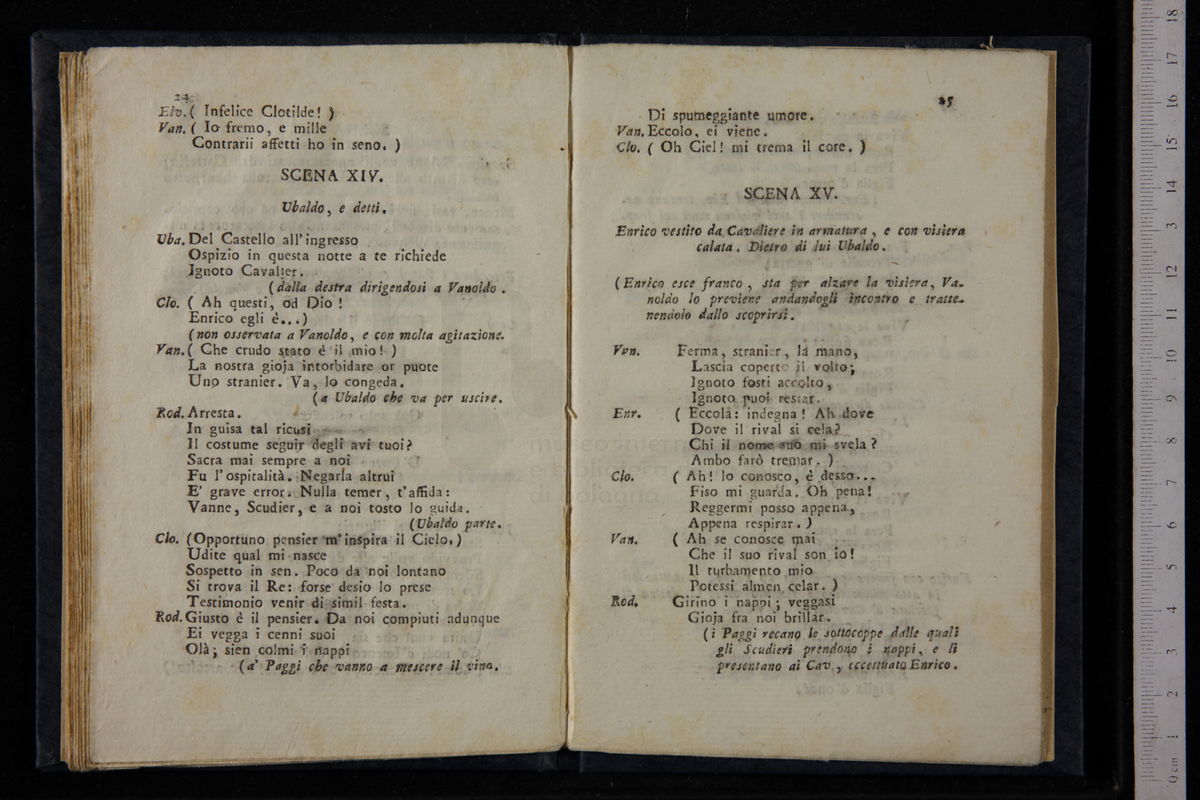 24
Elv. ( Infelice Clotilde! )
Van. ( Io fremo, e mille
Contrarii affetti ho in seno. )
SCENA XIV.
Ubaldo, e detti.
Uba. Del Castello all'ingresso
Ospizio in questa notte a te richiede
Ignoto Cavalier.
(dalla destra dirigendosi a Vanoldo.
Clo. ( Ah questi, od Dio!
Enrico egli è...)
(non osservata a Vanoldo, e con molta agitazione.
Van. ( Che crudo stato è il mio! )
La nostra gioja intorbidare or puote
Uno stranier. Va, lo congeda.
(a Ubaldo che va per uscire.
Rod. Arresta.
In guisa tal ricusi
Il costume seguir degli avi tuoi?
Sacra mai sempre a noi
Fu l'ospitalità. Negarla altrui
E' grave error. Nulla temer, t'affida:
Vanne, Scudier, e a noi tosto lo guida.
(Ubaldo parte.
Clo. (Opportuno pensier m'inspira il Cielo.)
Udite qual mi nasce
Sospetto in sen. Poco da noi lontano
Si trova il Re: forse desio lo prese
Testimonio venir di simil festa.
Rod. Giusto è il pensier. Da noi compiuti adunque
Ei vegga i cenni suoi
Olà; sien colmi i nappi
(a' Paggi che vanno a mescere il vino.
25
Di spumeggiante umore.
Van. Eccolo, ei viene.
Clo. ( Oh Ciel! mi trema il core. )
SCENA XV.
Enrico vestito da Cavaliere in armatura, e con visiera
calata. Dietro di lui Ubaldo.
(Enrico esce franco, sta per alzare la visiera, Va-
noldo lo previene andandogli incontro e tratte-
nendolo dallo scoprirsi.
Van. Ferma, stranier, la mano,
Lascia coperto il volto;
Ignoto fosti accolto,
Ignoto puoi restar.
Enr. ( Eccola: indegna! Ah dove
Dove il rival si cela?
Chi il nome suo mi svela?
Ambo farò tremar. )
Clo. ( Ah! lo conosco, è desso...
Fiso mi guarda. Oh pena!
Reggermi posso appena,
Appena respirar. )
Van. ( Ah se conosce mai
Che il suo rival son io!
Il turbamento mio
Potessi almen celar. )
Rod. Girino i nappi; veggasi
Gioja fra noi brillar.
(i Paggi recano le sottocoppe dalle quali
gli Scudieri prendono i nappi, e li
presentano ai Cav., eccettuato Enrico.